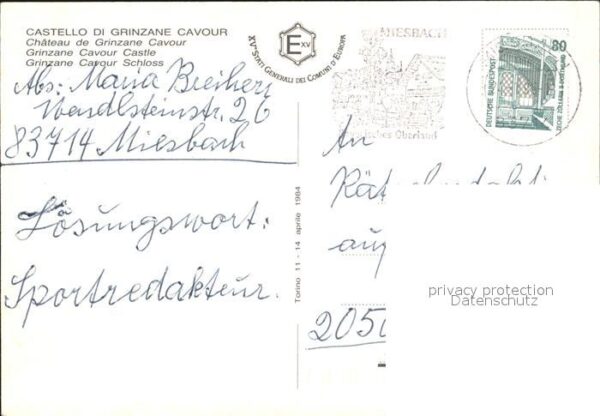 CASTELLO DI GRINZANE CAVOUR
Château de Grinzane Cavour
Grinzane Cavour Castle
Grinzane Cavour Schloss
Abs: Maria
Wendlsteinstr. 26
83714 Miesbach
Lösungswort:
Sportredakteur.
E XV
XV.STATI GENERALI DEI COMUNI D'EUROPA
Torino 11 - 14 aprile 1984
MIESBACH
Oberland
80
DEUTSCHE BUNDESPOST
ZECHE ZOLLERN II · DORTMUND
An
205
privacy protection
Datenschutz